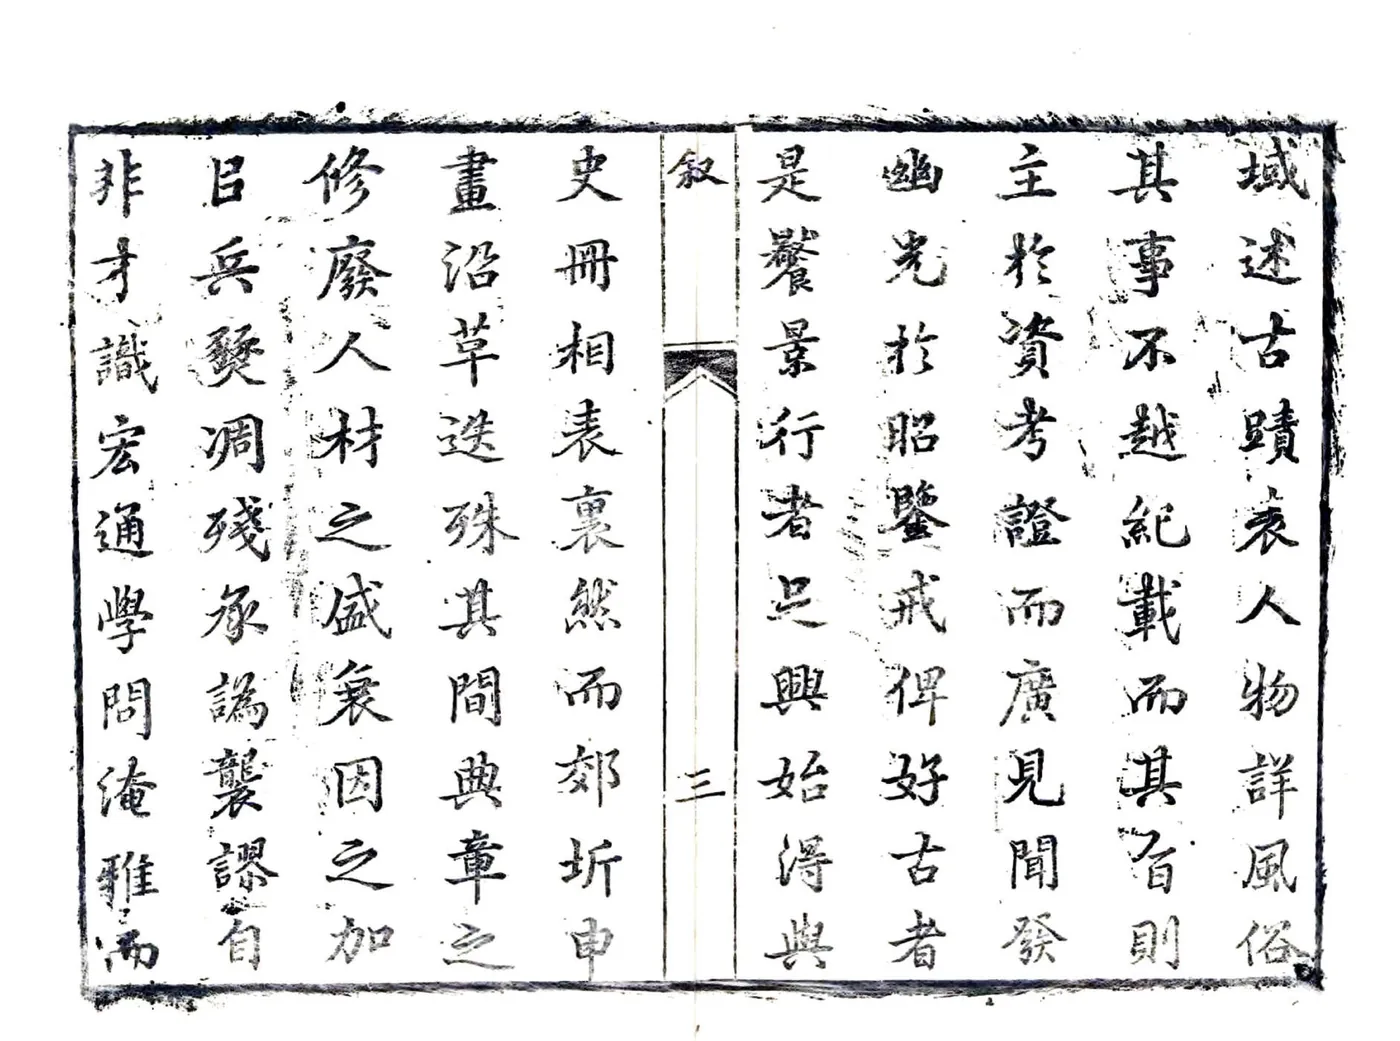 域述古蹟表人物詳風俗
其事不越紀載而其旨則
主於資考證而廣見聞發
幽光於昭鑒戒俾好古者
是饜景行者足興始得與
叙
三
史冊相表裏然而郊圻申
畫沿革迭殊其間典章之
修廢人材之盛衰因之加
㠯兵燹凋殘承譌襲謬自
非才識宏通學問淹雅而